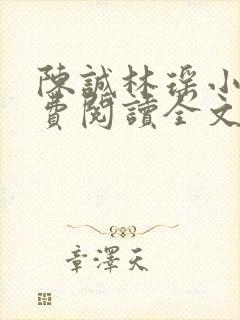 陳誠林瑤小
費閱讀全文
章澤天